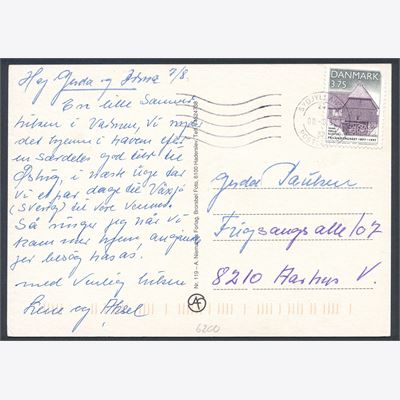 Hej Gerda og 7/8.
En lille Sommer
hilsen i Varmen, Vi nyder
det hjemme i haven efter
en Særdeles god tur til
Østrig, i næste uge tar
Vi et par dage til Växjö
(Sverig) til vore Venner.
Så ringer jeg når Vi
kommer hjem, angående
jer besøg hos os.
med Venlig hilsen
Lene og Aksel
DANMARK
3.75
SYDJYL
POST
FRILANDSMUSEET 1897-1997
Gerda Paulsen
Frugsangsalle 107
8210 Aarhus V.
Nr. 119 - A. Forlag, Bramdall Foto, 6100 Haderslev, Tel.
AF
6200